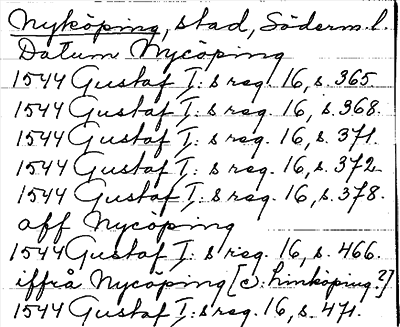 Nyköping, stad, Söderm. l.
Datum Nycöping
1544 Gustaf I:s reg. 16, s. 365.
1544 Gustaf I:s reg. 16, s. 368.
1544 Gustaf I:s reg. 16, s. 371.
1544 Gustaf I:s reg. 16, s. 372.
1544 Gustaf I:s reg. 16, s. 378.
aff Nycöping
1544 Gustaf I:s reg. 16, s. 466.
iffrå Nycöping [ɔ: Linköping?]
1544 Gustaf I:s reg. 16, s. 471.